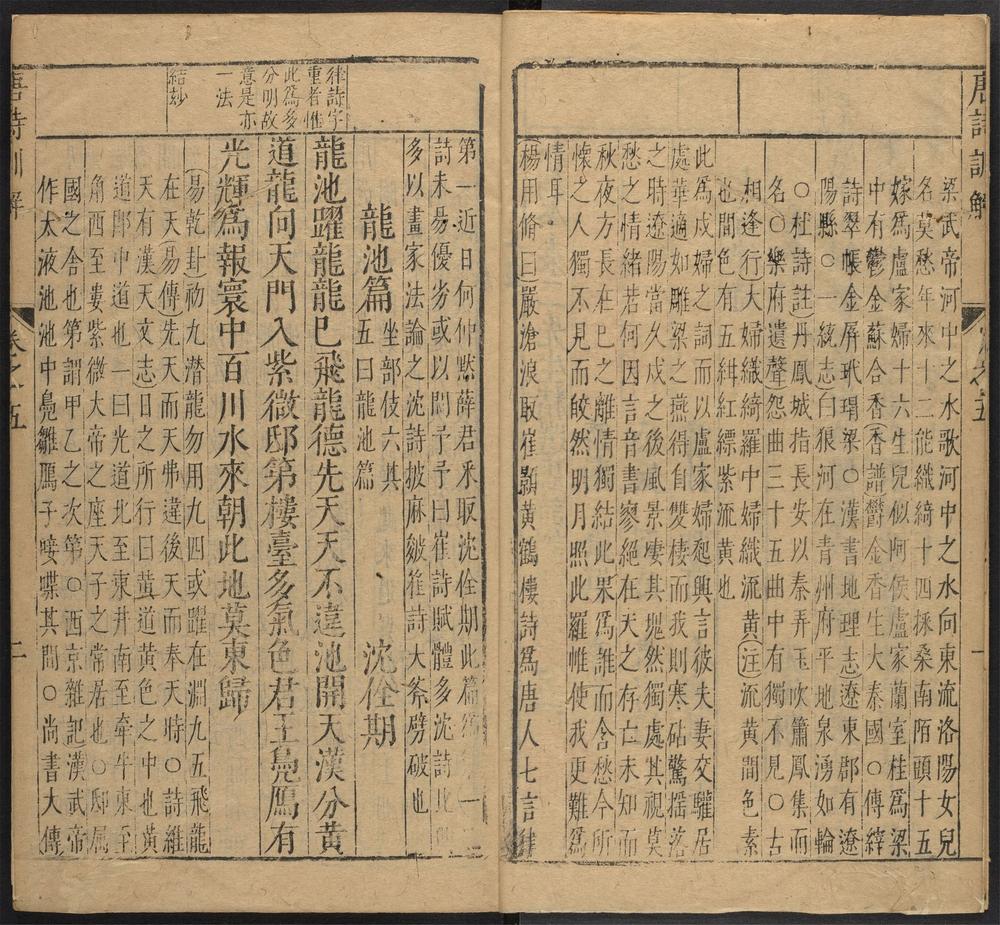 唐詩訓解
卷之五
一
梁武帝河中之水歌河中之水向東流洛陽女兒
名莫愁年來十二能織綺十四採桑南陌頭十五
嫁爲盧家婦十六生兒似阿侯盧家蘭室桂爲梁
中有鬱金蘇合香(香譜)鬱金香生大秦國○傳縡
詩翠帳金屏玳瑁梁○漢書地理志遼東郡有遼
陽縣○一統志白狼河在青州府平地泉湧如輪
○杜詩註丹鳳城指長安以秦弄玉吹簫鳳集而
名○樂府遺聲怨曲三十五曲中有獨不見○古
相逢行大婦織綺羅中婦織流黃(注)流黃間色素
也間色有五紺紅縹紫流黃也
此爲戍婦之詞而以盧家婦起興言彼夫妻交驩居
處華適如雕梁之燕得自雙棲而我則寒砧驚搖落
之時遼陽當久戍之後風景悽其塊然獨處其視莫
愁之情緒若何因言音書寥絕在天之存亡未知而
秋夜方長在巳之離情獨結此果爲誰而含愁今所
懷之人獨不見而皎然明月照此羅帷使我更難爲
情耳
楊用脩曰嚴滄浪取崔顥黃鶴樓詩爲唐人七言律
第一近日何仲默薛君采取沈佺期此篇
詩未易優劣或以問予予曰崔詩賦體多沈詩比
多以畫家法論之沈詩披麻皴崔詩大斧劈皴也
龍池篇 坐部伎六其
五曰龍池篇
沈佺期
龍池躍龍龍巳飛龍德先天天不違池開天漢分黃
道龍向天門入紫微邸第樓臺多氣色君王鳧鴈有
光輝爲報寰中百川水來朝此地莫東歸
律詩字
重者惟
此爲多
分明故
意是亦
一法
結妙
(易乾卦)初九潛龍勿用九四或躍在淵九五飛龍
在天(易傳)先天而天弗違後天而奉天時○詩維
天有漢天文志日之所行曰黃道黃色之中也黃
道郎中道也一曰光道北至東井南至牽牛東至
角西至婁紫微大帝之座天子之常居也○邸屬
國之舍也第謂甲乙之次第○西京雜記漢武帝
作太液池池中鳧雛鴈子唼喋其間○尚書大傳
唐詩訓解
卷之五
二